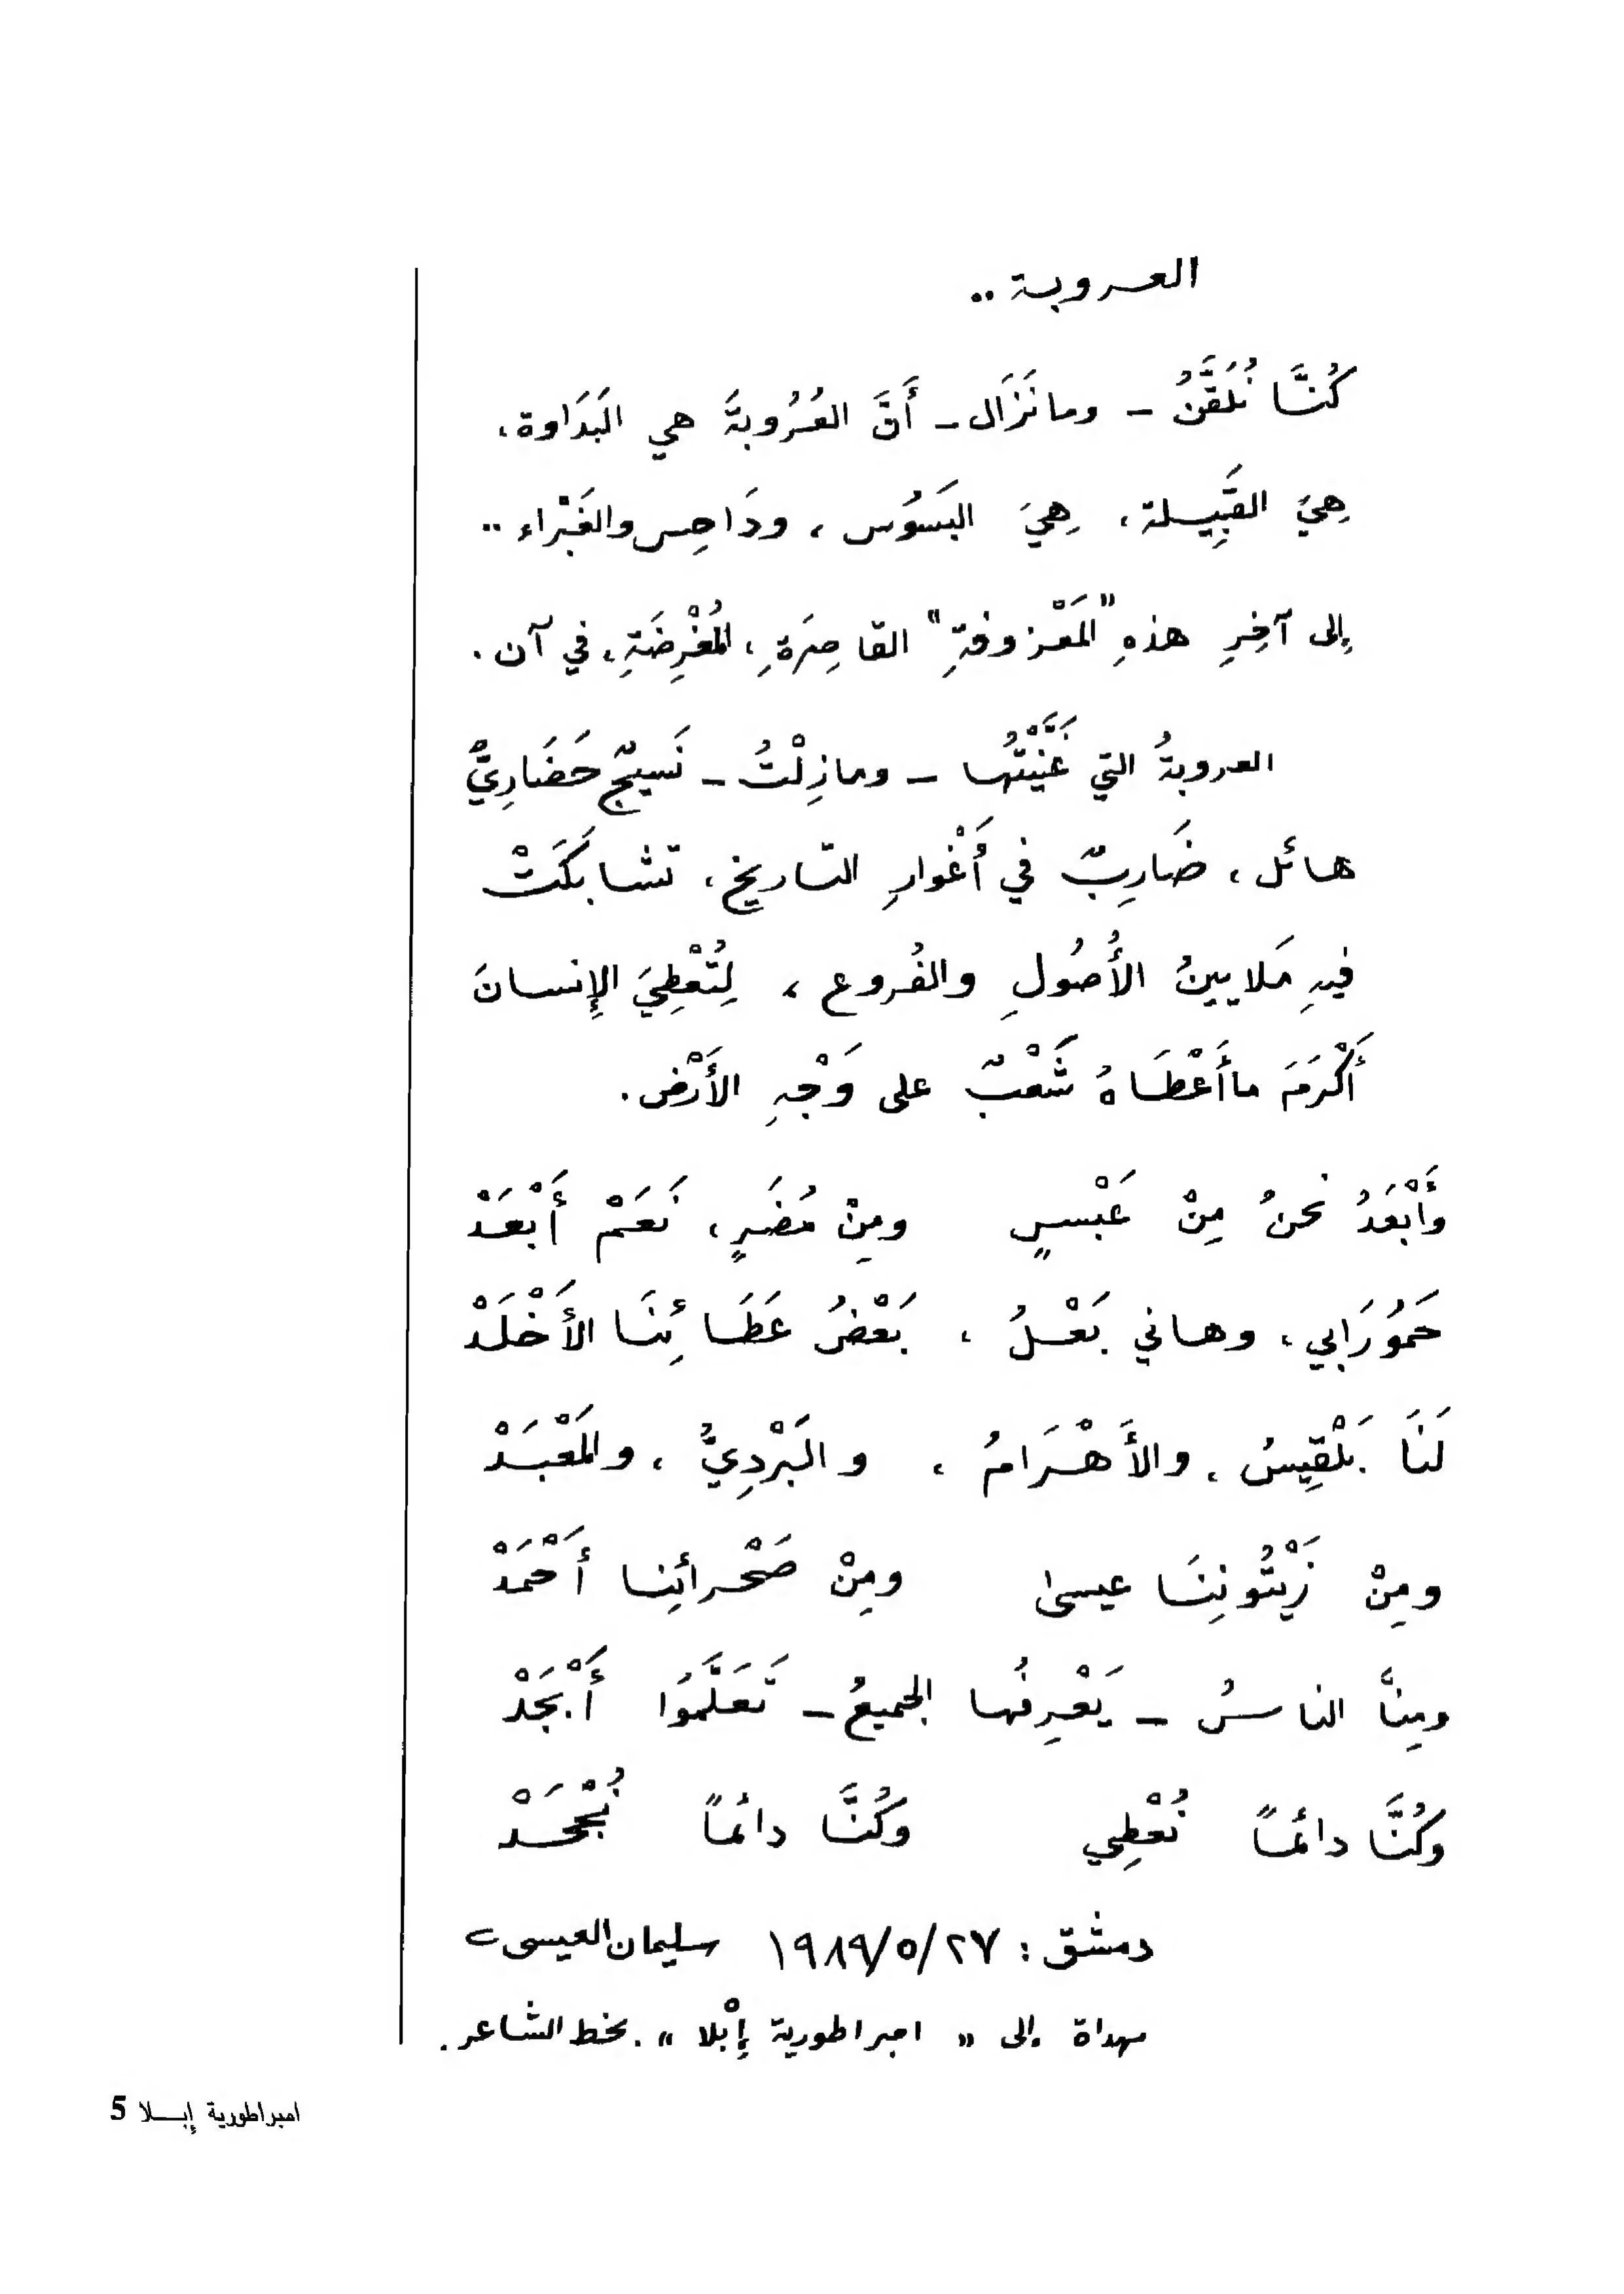 العروبة ..
كُنَّا نُلَقَّنُ - وما نَزَال - أَنَّ العُرُوبَةَ هي البَدَاوة،
هِيَ القَبِيلة، هِيَ البَسُوس، ودَاحِس والغَبْراء ..
إلى آخِرِ هذهِ "المَعْزوفةِ" القاصِرَةِ، المُغْرِضَةِ، في آن.
العروبةُ التي غَنَّيْتُها - ومازِلْتُ - نَسيجٌ حَضَارِيٌّ
هائل، ضَارِبٌ في أَغْوارِ التاريخ، تشابَكَتْ
فيهِ مَلايينُ الأُصُولِ والفُروع، لِتُعْطِيَ الإِنسانَ
أَكْرَمَ ما أَعْطَاهُ شَعْبٌ على وَجْهِ الأَرْض.
وأَبْعَدُ نحنُ مِنْ عَبْسٍ ومِنْ مُضَرٍ، نَعَمْ أَبْعَدْ
حَمُورَابي، وهاني بَعْلُ، بَعْضُ عَطَائِنَا الأَخْلَدْ
لَنَا بَلْقِيسُ، والأَهْرَامُ، والبَرْدِيُّ، والمَعْبَدْ
ومِنْ زَيْتُونِنَا عيسىٰ ومِنْ صَحْرائِنا أَحْمَدْ
ومِنَّا الناسُ - يَعْرِفُها الجميعُ - تَعَلَّمُوا أَبْجَدْ
وكُنَّا دائماً نُعْطِي وكُنَّا دائماً نُجْحَدْ
دمشق : ٢٧/٥/١٩٨٩ سليمان العيسى
مهداة إلى « امبراطورية إِبْلا ». بخط الشاعر.
امبراطورية إبـــلا 5